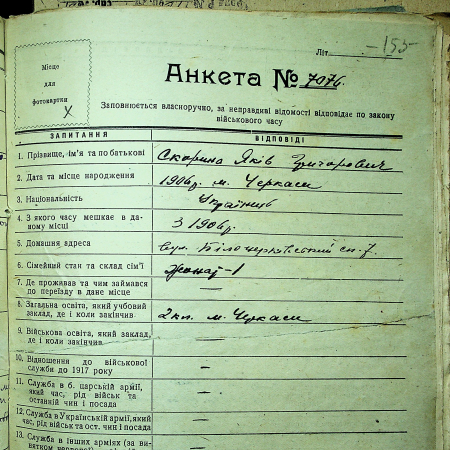 Літ.
-153-
Місце
для
фотокартки
Анкета № 7076.
Заповнюється власноручно, за неправдиві відомості відповідає по закону
військового часу
ЗАПИТАННЯ ВІДПОВІДІ
1. Прізвище, ім'я та по батькові Скорина Яків Григорович
2. Дата та місце народження 1906р. м. Черкаси
3. Національність Українець
4. З якого часу мешкає в да-
ному місці З 1906р.
5. Домашня адреса вул. Білоцерковський сп. 7.
6. Сімейний стан та склад сім'ї Жонат-1
7. Де проживав та чим займався
до переїзду в дане місце —
8. Загальна освіта, який учбовий
заклад, де і коли закінчив 2кл. м. Черкаси
9. Військова освіта, який заклад,
де і коли закінчив —
10. Відношення до військової
служби до 1917 року —
11. Служба в б. царській армії,
який час, рід військ та
останній чин і посада —
12. Служба в Українській армії, який
час, рід військ та ост. чин і посада —
13. Служба в інших арміях (за ви-